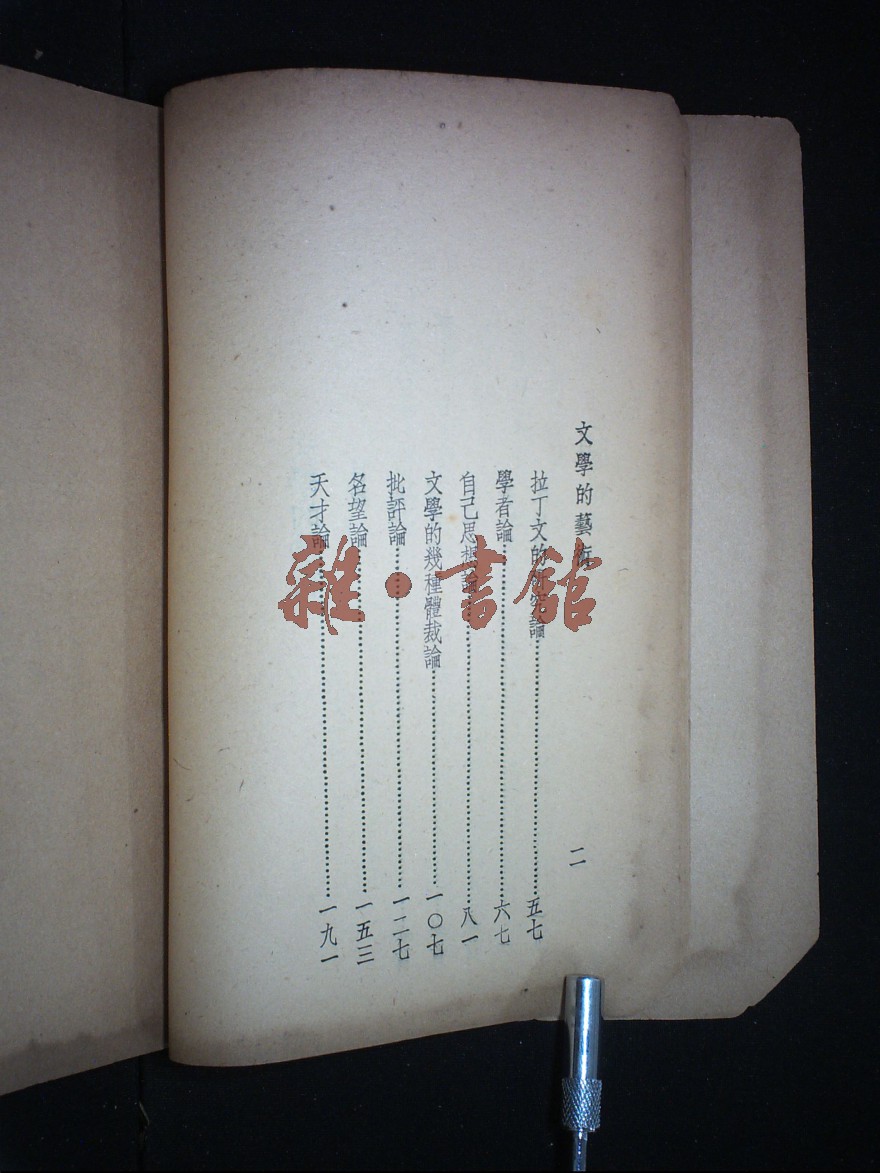 文學的藝術
二
拉丁文的研究論……五七
學者論……六七
自己思想論……八一
文學的幾種體裁論……一〇七
批評論……一二七
名望論……一五三
天才論……一九一
雜·書館